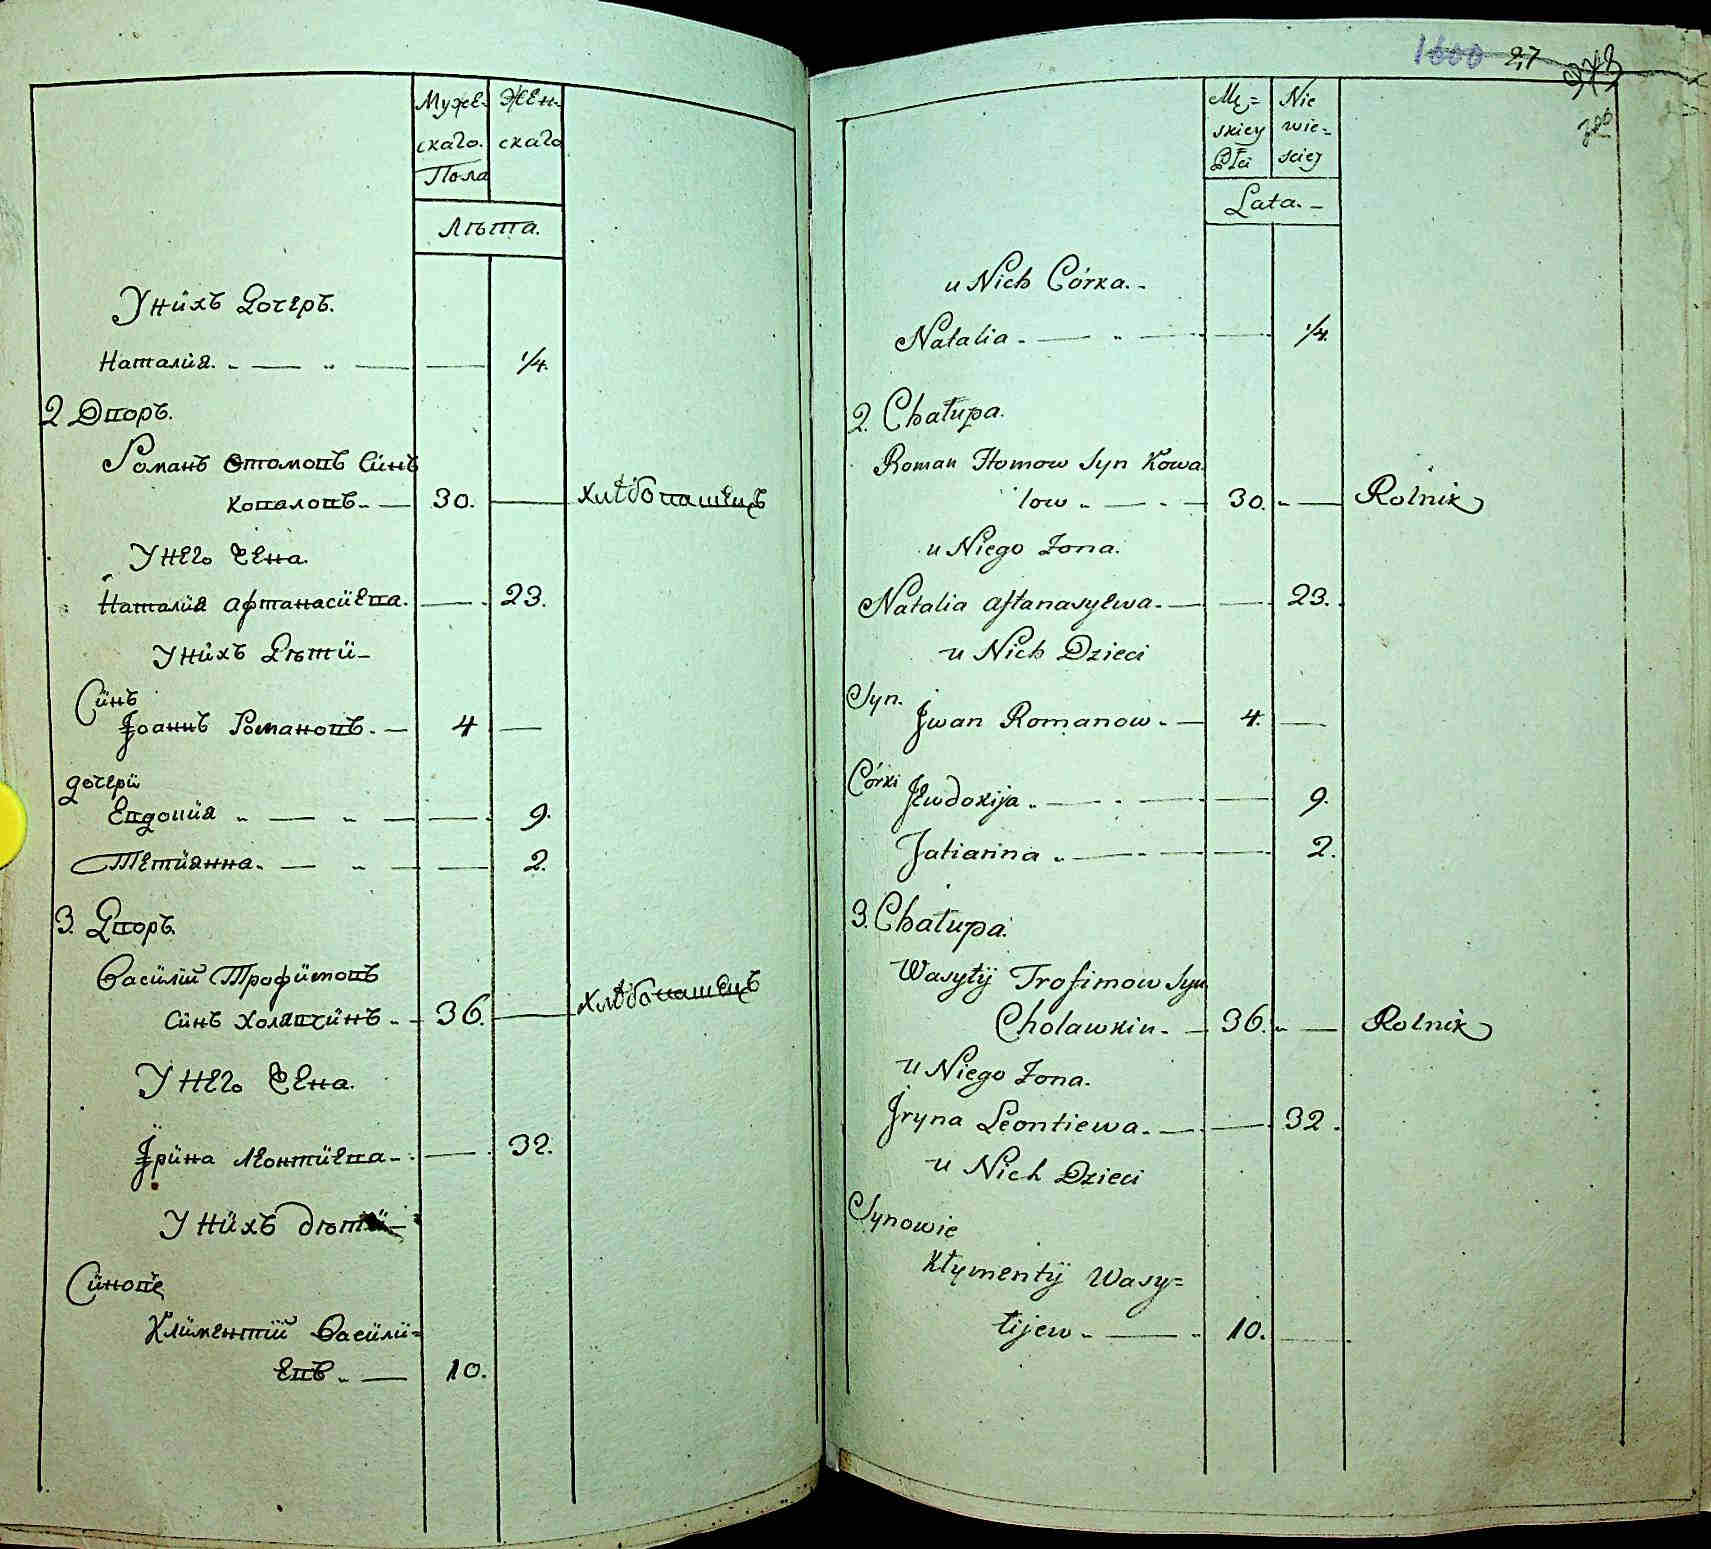 Муже- Жен-
скаго. скаго
Пола
Лѣта.
У нихъ Дочеръ.
Наталія. „ — „ — — 1/4.
2 Дворъ.
Романъ Хтомовъ Синъ
Коваловъ. — 30. — хлѣбопашецъ
У него Жена.
Наталія Афтанасіева. — 23.
У нихъ Дѣти –
Синъ
Іоаннъ Романовъ. — 4 —
дочери
Евдокія „ — „ — — 9.
Тетіянна. — „ — — 2.
3. Дворъ.
Василій Трофимовъ
Синъ Холявчинъ - 36. — хлѣбопашецъ
У него Жена.
Ірина Леонтіева - — 32.
У нихъ дѣти –
Синове
Климентій Василі=
евъ „ — 10.
1600 27
Mę= Nie
skiey wie=
Płci sciej
Lata. –
u Nich Córka. -
Natalia - — „ — — 1/4.
2. Chałupa.
Roman Htomow Syn Kowa
low „ — - — 30. - — Rolnik
u Niego Żona.
Natalia Aftanasyewa. — — 23.
u Nich Dzieci
Syn.
Jwan Romanow. — 4. —
Córki
Jewdokija „ — - — — 9.
Tatianna „ — - — — 2.
3. Chałupa.
Wasyłÿ Trofimow Syn
Cholawkin - — 36. „ — Rolnik
u Niego Żona.
Jryna Leontiewa. — — 32.
u Nich Dzieci
Synowie
Kłymentÿ Wasy=
łijew - — - 10. —